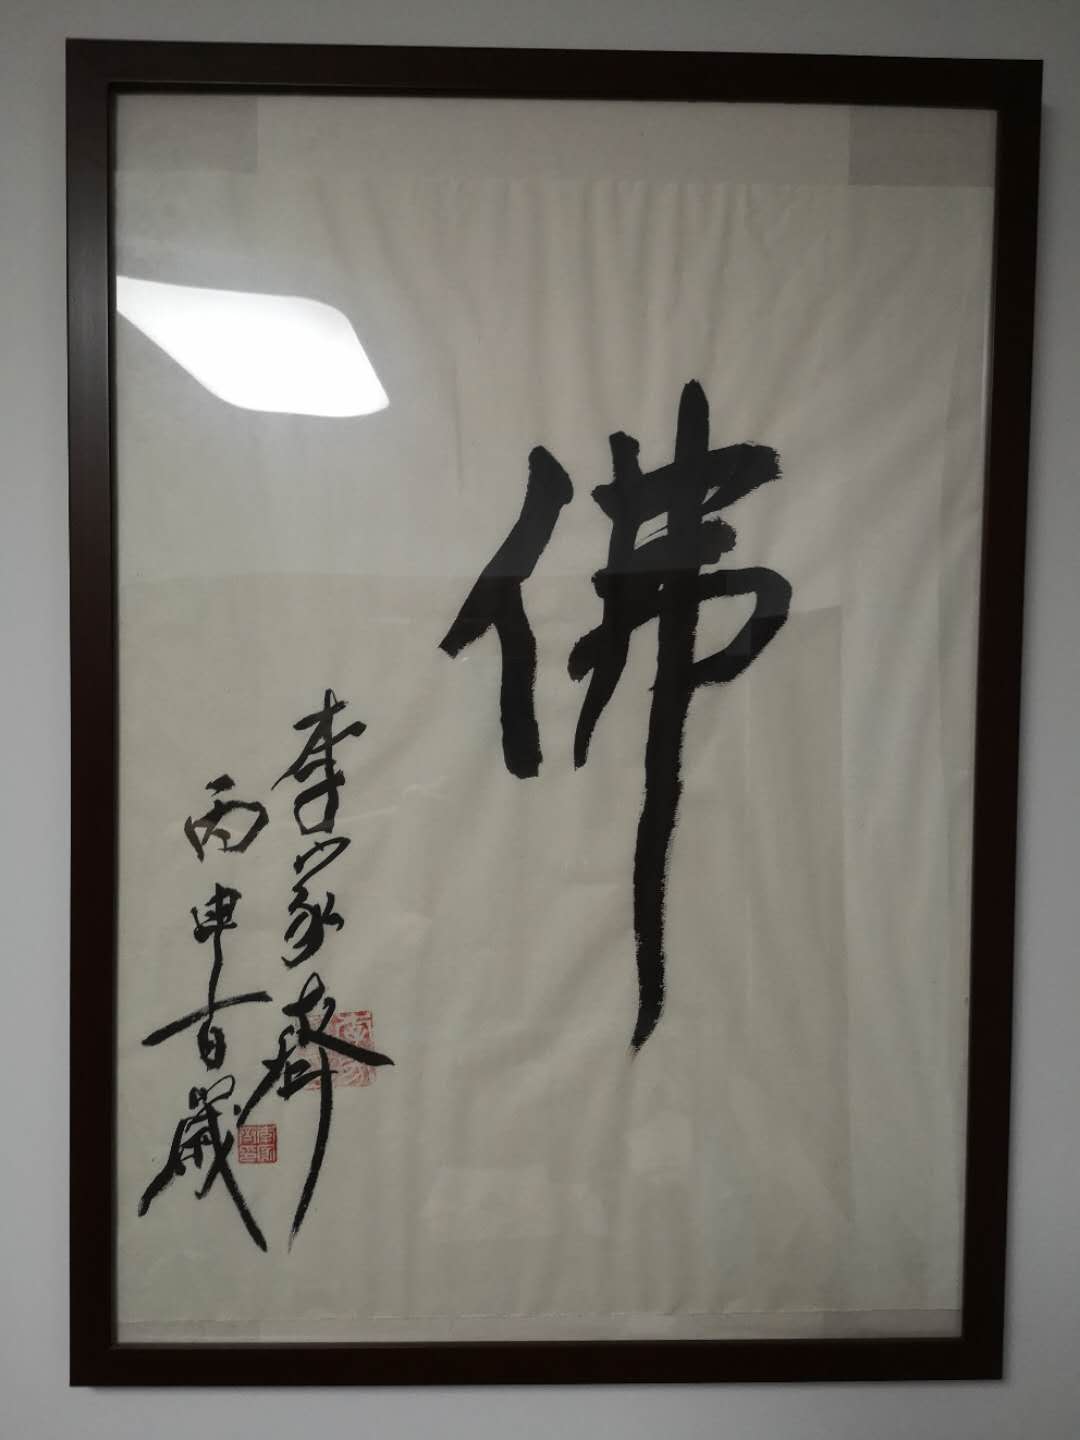 佛
李家齐
丙申百歲